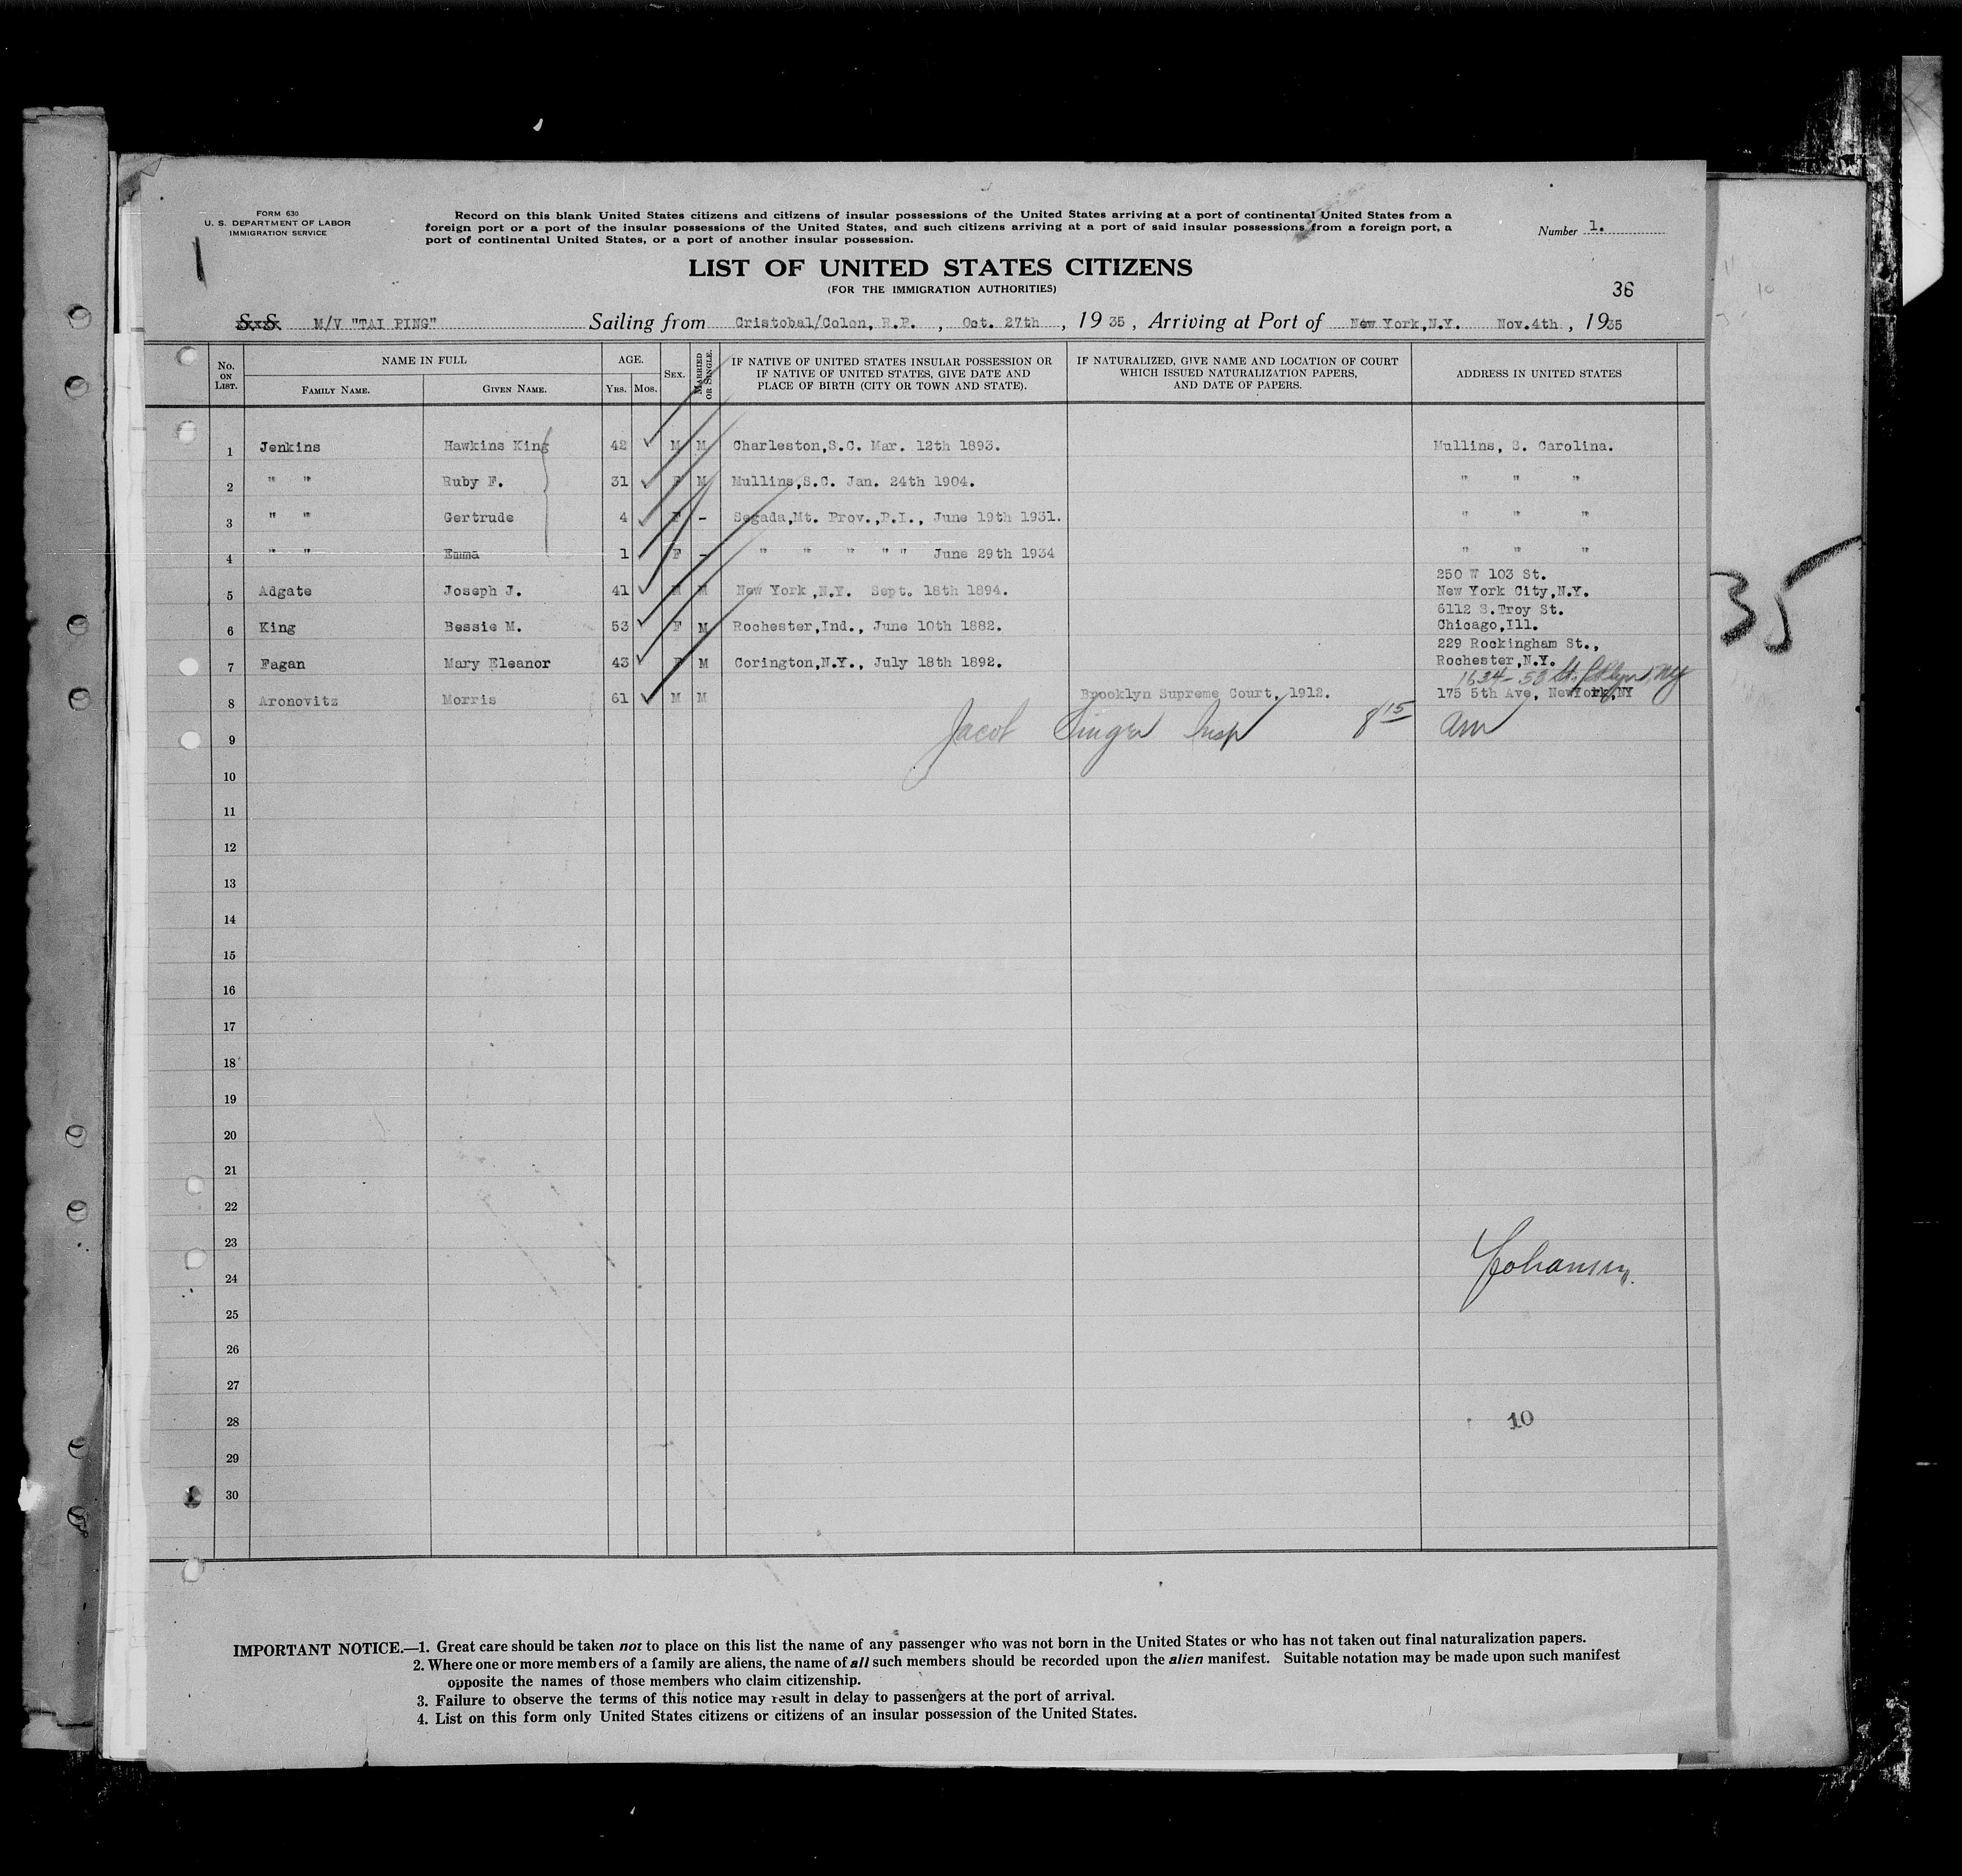 FORM 630
U. S. DEPARTMENT OF LABOR
IMMIGRATION SERVICE
Record on this blank United States citizens and citizens of insular possessions of the United States arriving at a port of continental United States from a
foreign port or a port of the insular possessions of the United States, and such citizens arriving at a port of said insular possessions from a foreign port, a
port of continental United States, or a port of another insular possession.
Number 1.
LIST OF UNITED STATES CITIZENS
(FOR THE IMMIGRATION AUTHORITIES)
36
S.S. M/V "TAI PING" Sailing from Cristobal/Colon, R.P. , Oct. 27th , 1935 , Arriving at Port of New York,N.Y. Nov.4th , 1935
No. ON LIST. NAME IN FULL AGE. SEX. MARRIED OR SINGLE. IF NATIVE OF UNITED STATES INSULAR POSSESSION OR IF NATIVE OF UNITED STATES, GIVE DATE AND PLACE OF BIRTH (CITY OR TOWN AND STATE). IF NATURALIZED, GIVE NAME AND LOCATION OF COURT WHICH ISSUED NATURALIZATION PAPERS, AND DATE OF PAPERS. ADDRESS IN UNITED STATES
FAMILY NAME. GIVEN NAME. YRS. MOS.
1 Jenkins Hawkins King 42 M M Charleston,S.C. Mar. 12th 1893. Mullins, S. Carolina.
2 " " Ruby F. 31 F M Mullins,S.C. Jan. 24th 1904. " " "
3 " " Gertrude 4 F - Segada,Mt. Prov.,P.I., June 19th 1931. " " "
4 " " Emma 1 F - " " " " " June 29th 1934 " " "
250 W 103 St.
5 Adgate Joseph J. 41 M M New York ,N.Y. Sept. 18th 1894. New York City,N.Y.
6112 S.Troy St.
6 King Bessie M. 53 F M Rochester,Ind., June 10th 1882. Chicago,Ill.
229 Rockingham St.,
7 Fagan Mary Eleanor 43 F M Corington,N.Y., July 18th 1892. Rochester,N.Y.
1634- 53 St. Bklyn, NY
8 Aronovitz Morris 61 M M Brooklyn Supreme Court, 1912. 175 5th Ave, NewYork,NY
Jacob Singer Insp 8 15 am
9
10
11
12
13
14
15
16
17
18
19
20
21
22
23
Johansen
24
25
26
27
28 10
29
30
35
IMPORTANT NOTICE.—1. Great care should be taken not to place on this list the name of any passenger who was not born in the United States or who has not taken out final naturalization papers.
2. Where one or more members of a family are aliens, the name of all such members should be recorded upon the alien manifest. Suitable notation may be made upon such manifest
opposite the names of those members who claim citizenship.
3. Failure to observe the terms of this notice may result in delay to passengers at the port of arrival.
4. List on this form only United States citizens or citizens of an insular possession of the United States.